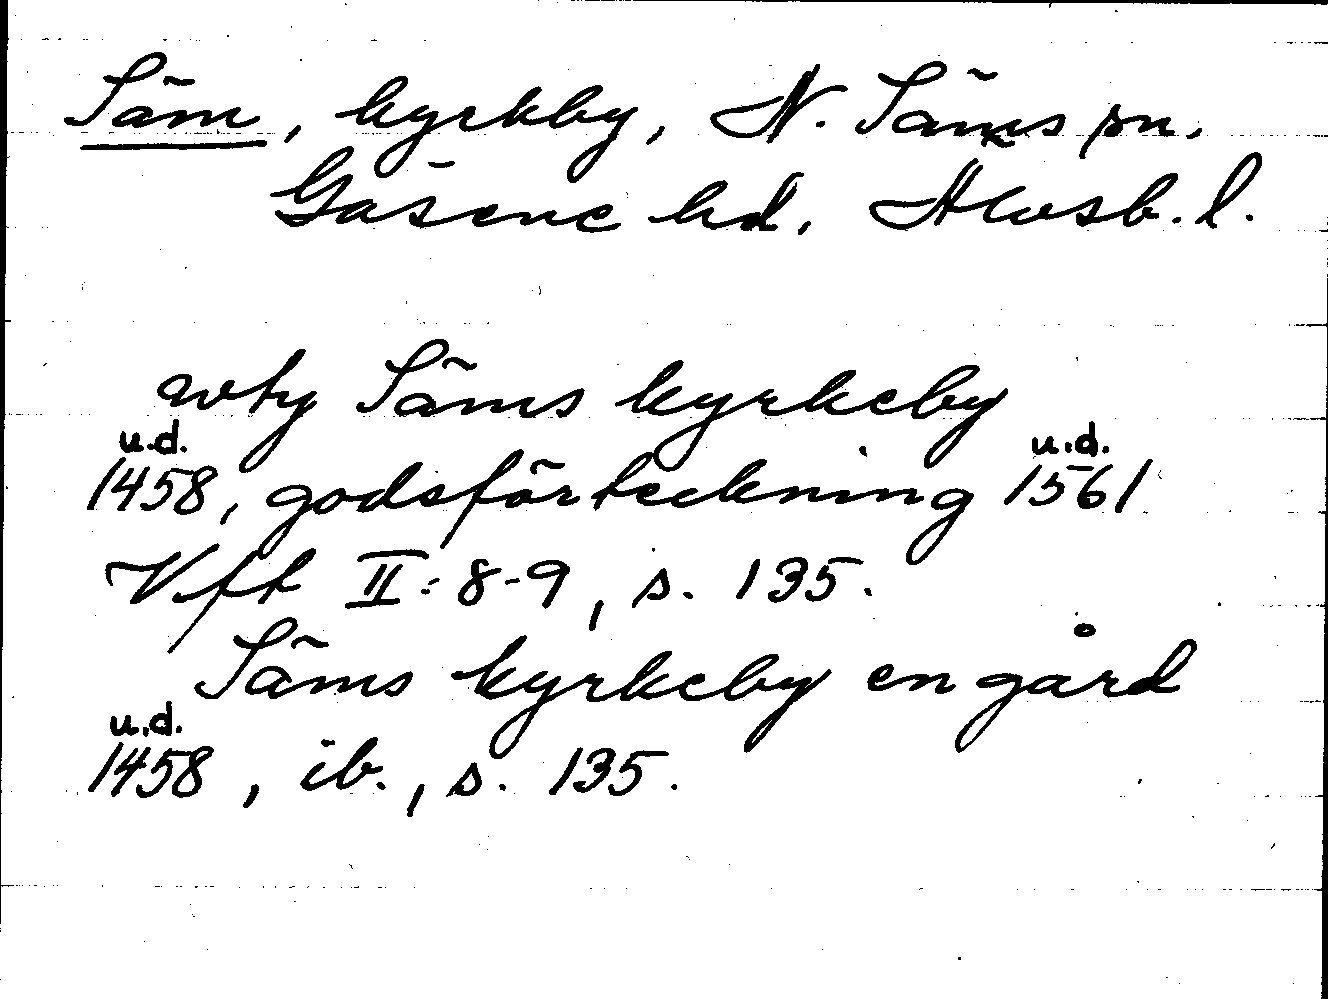 Säm, kyrkby, N. Säms sn.
Gäsene hd. Älvsb. l.
wty Säms kyrkeby
u.d. u.d.
1458, godsförteckning 1561
Vft II: 8-9, s. 135.
Säms kyrkeby en gård
u.d.
1458, ib., s. 135.